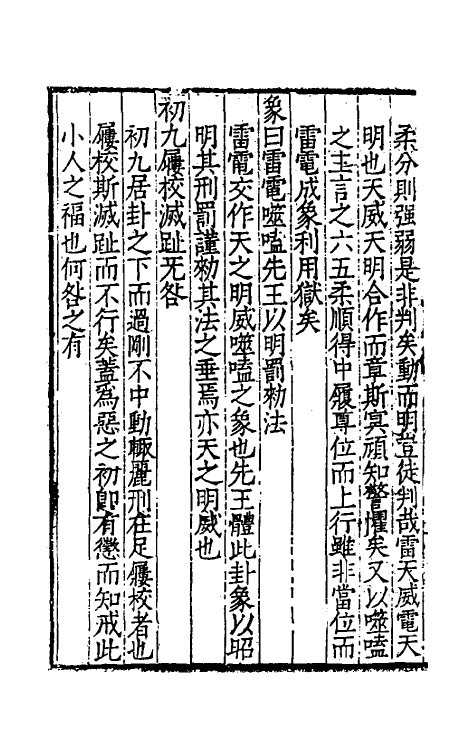 柔分則强弱是非判矣動而明豈徒判哉雷天威電天
明也天威天明合作而章斯冥頑知警懼矣又以噬嗑
之主言之六五柔順得中履尊位而上行雖非當位而
雷電成象利用獄矣
象曰雷電噬嗑先王以明罰勑法
雷電交作天之明威噬嗑之象也先王體此卦象以昭
明其刑罰謹勑其法之垂焉亦天之明威也
初九屨校滅趾无咎
初九居卦之下而過剛不中動輙麗刑在足屨校者也
屨校斯滅趾而不行矣蓋為惡之初即有懲而知戒此
小人之福也何咎之有